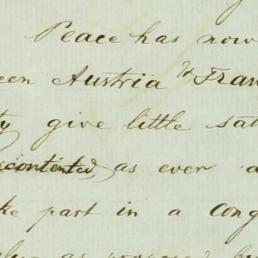 Peace has now
een Austria & Fran
ty give little sat
scontented, as ever a
ke part in a cong